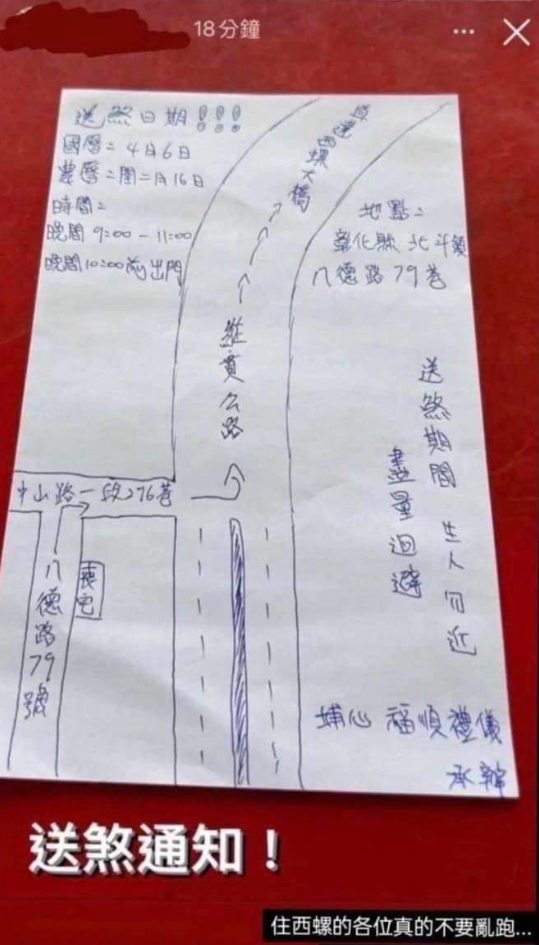 18分鐘
送煞日期!!!
國曆：4月6日
農曆：閏二月16日
時間：
晚間 9:00－11:00
晚間10:00前出門
直通西螺大橋
地點：
彰化縣 北斗鎮
八德路79巷
縱貫公路
送煞期間 生人勿近
盡量迴避
中山路一段276巷
喪宅
八德路79號
埔心 福順禮儀
承辦
送煞通知！
住西螺的各位真的不要亂跑...